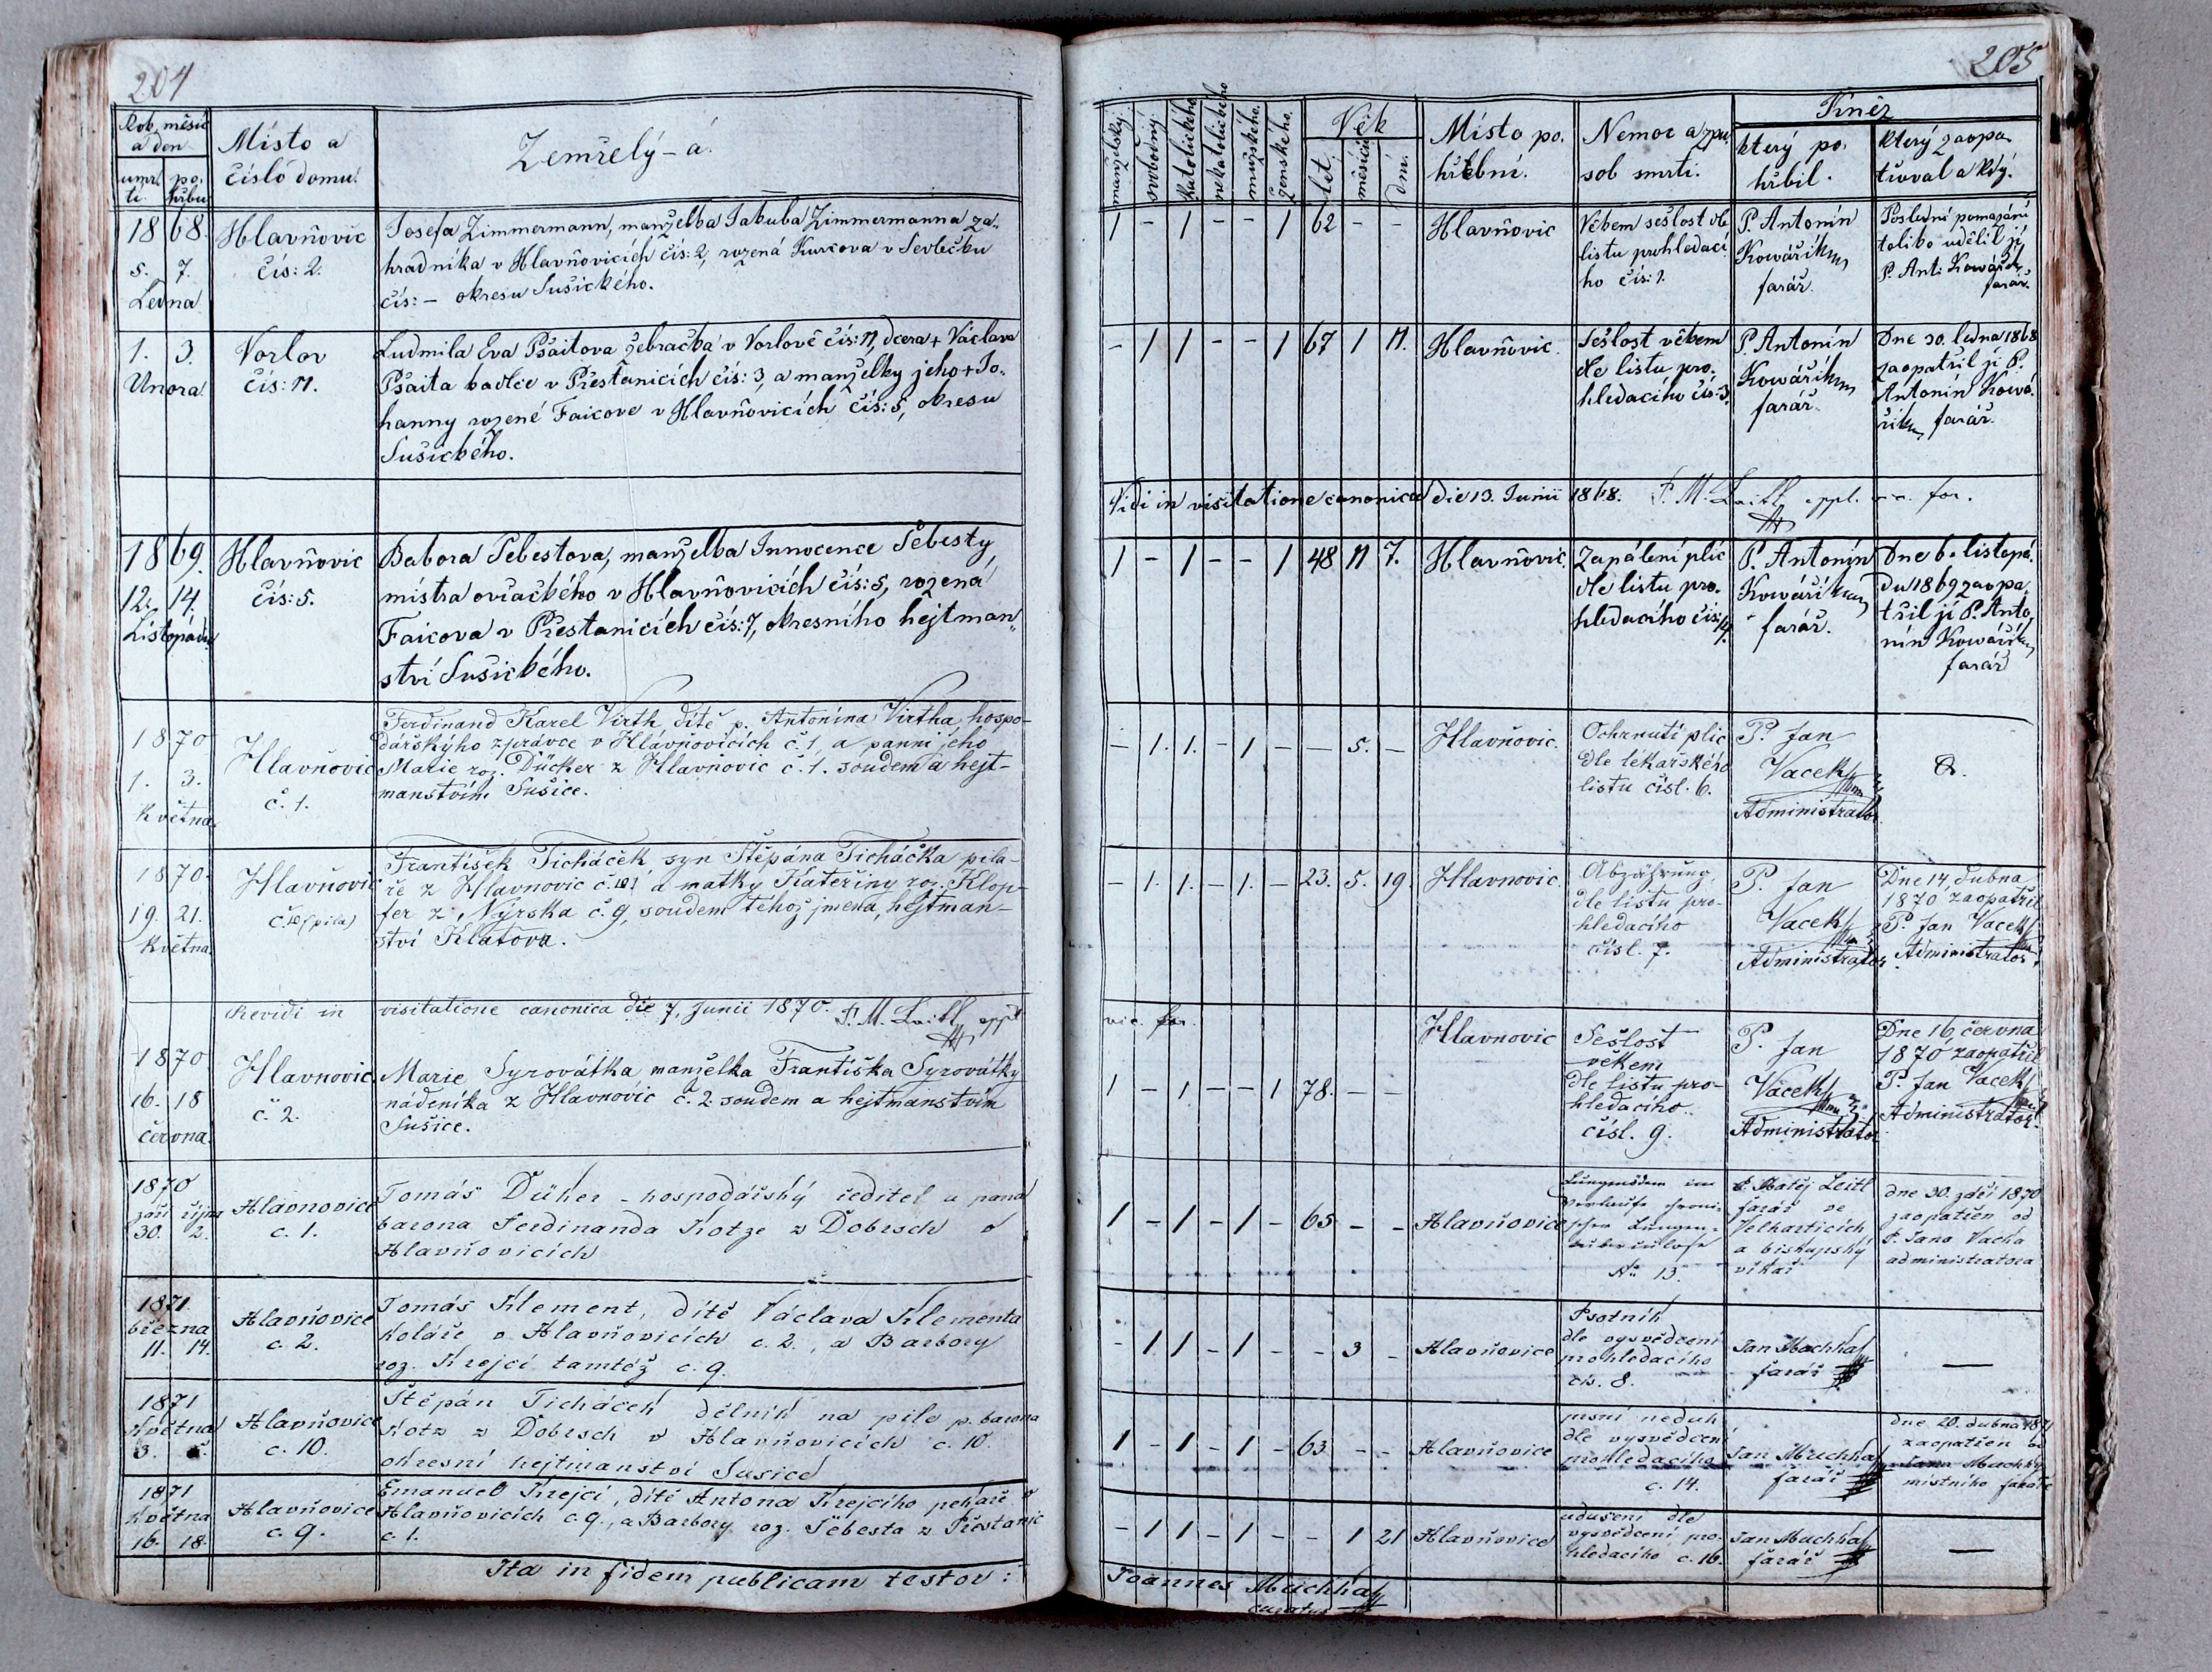 204
Rok, měsíc
a den
Místo a
číslo domu.
Zemřelý-á.
úmr-
tí.
po-
hřbu
1868.
5. 7.
Ledna
Hlavňovic
čís: 2.
Josefa Zimmermann, manželka Jakuba Zimmermanna za-
hradníka v Hlavňovicích čís: 2, rozená
čís: – okresu Sušického.
1. 3.
Února
Vorlov
čís: 11.
Ludmila Eva Pšaitova žebračka v Vorlově čís: 11, dcera + Václava
Pšaita v Přestanicích čís: 3, a manželky jeho + Jo-
hanny rozené Faicove v Hlavňovicích čís: 5, okresu
Sušického.
1869.
12. 14.
Listopadu
Hlavňovic
čís: 5.
Babora Šebestova, manželka Innocence Šebesty,
mistra ovčáckého v Hlavňovicích čís: 5, rozená
Faicova v Přestanicích čís: 7, okresního hejtman-
ství Sušického.
1870
1. 3.
Května
Hlavňovic
č. 1.
Ferdinand Karel Virth dítě p. Antonína Virtha hospo-
dářského zprávce v Hlavňovicích č. 1, a panni jeho
Marie roz. Dücker z Hlavňovic č. 1. soudem a hejt-
manstvím Sušice.
1870
19. 21.
Května
Hlavňovic
č. 10 (pila)
František Ticháček syn Štěpána Ticháčka pila-
ře z Hlavnovic č. 10 a matky Kateřiny roz. Klop-
fer z Nýrska č. 9, soudem téhož jmena, hejtman-
ství Klatova.
Revidi in visitatione canonica die 7. Junii 1870. F. M. Leitl
1870
16. 18
června
Hlavnovic
č. 2.
Marie Syrovátka manželka Františka Syrovátky
nádeníka z Hlavnovic č. 2 soudem a hejtmanstvím
Sušice.
1870
září října
30. 2.
Hlavnovice
c. 1.
Tomáš Düker - hospodářský ředitel u pana
barona Ferdinanda Kotze z Dobrsch v
Hlavňovicích
1871
března
11. 14.
Hlavňovice
c. 2.
Tomáš Klement, dítě Václava Klementa
koláře v Hlavňovicích c. 2., a Barbory
roz. Krejcí tamtéž c. 9.
1871
Května
3.
Hlavňovice
c. 10.
Štěpán Ticháček dělník na pile p. barona
Kotz z Dobrsch v Hlavňovicích c. 10.
okresní hejtmanství Susice
1871
Května
16. 18.
Hlavňovice
c. 9.
Emanuel Krejcí, dítě Antona Krejcího pekaře v
Hlavňovicích c. 9., a Barbory roz. Šebesta z Přestanic
c. 1.
Ita in fidem publicam testor:
205
manželský.
svobodný.
Katolického
nekatolického
mužského.
ženského.
Věk
let.
měsíců
dní.
Místo po-
hřební.
Nemoc a zpu-
sob smrti.
Kněz
který po-
hřbil.
který zaopa-
třoval a kdy.
1 - 1 - - 1 62 - -
Hlavňovic
Věkem sešlost dle
listu prohledací-
ho čís: 1.
P. Antonín
Kowářík
farář.
Poslední pomazání
toliko udělil jí
P. Ant: Kowářík
farář.
- 1 1 - - 1 67 1 11.
Hlavňovic.
Sešlost věkem
dle listu pro-
hledacího čís: 3.
P. Antonín
Kowářík
farář.
Dne 30. ledna 1868
zaopatřil jí P.
Antonín Kowá-
řík farář.
Vidi in visitatione canonica die 13. Junii 1868. F. M. Leitl vic. for.
1 - 1 - - 1 48 11 7.
Hlavňovic.
Zapálení plic
dle listu pro-
hledacího čís: 14.
P. Antonín
Kowářík
farář.
Dne 6. listopa-
du 1869 zaopa-
třil jí P. Anto-
nín Kowářík
farář
- 1. 1. - 1 - - 5. -
Hlavňovic.
Ochrnutí plic
dle lékařského
listu čísl. 6.
P. Jan
Vacek
Administrator
- 1. 1. - 1. - 23. 5. 19.
Hlavnovic.
Abzährung
dle listu pro-
hledacího
čísl. 7.
P. Jan
Vacek
Administrator
Dne 14. dubna
1870 zaopatřil
P. Jan Vacek
Administrator.
vic. for.
1 - 1 - - 1 78. - -
Hlavnovic
Sešlost
věkem
dle listu pro-
hledacího
čísl. 9.
P. Jan
Vacek
Administrator
Dne 16. června
1870 zaopatřil
P. Jan Vacek
Administrator.
1 - 1 - 1 - 65 - -
Hlavňovice
Lungenödem im
Verlaufe chroni-
scher Lungen-
tuberculose
No 13.
P. Matěj Leitl
farář ve
Velharticích
a biskupský
vikář
dne 30. září 1870
zaopatřen od
P. Jana Vacka
administratora
- 1 1 - 1 - - 3 -
Hlavňovice
Psotník
dle vysvědcení
prohledacího
cís. 8.
Jan Muchka
farář
—
1 - 1 - 1 - 63 - -
Hlavňovice
prsní neduh
dle vysvědcení
prohledacího
c. 14.
Jan Muchka
farář
dne 20. dubna 1871
zaopatřen od
Jana Muchky
místního faráře
- 1 1 - 1 - - 1 21
Hlavňovice
udušení dle
vysvědcení pro-
hledacího c. 16.
Jan Muchka
farář
—
Joannes Muchka
curatus